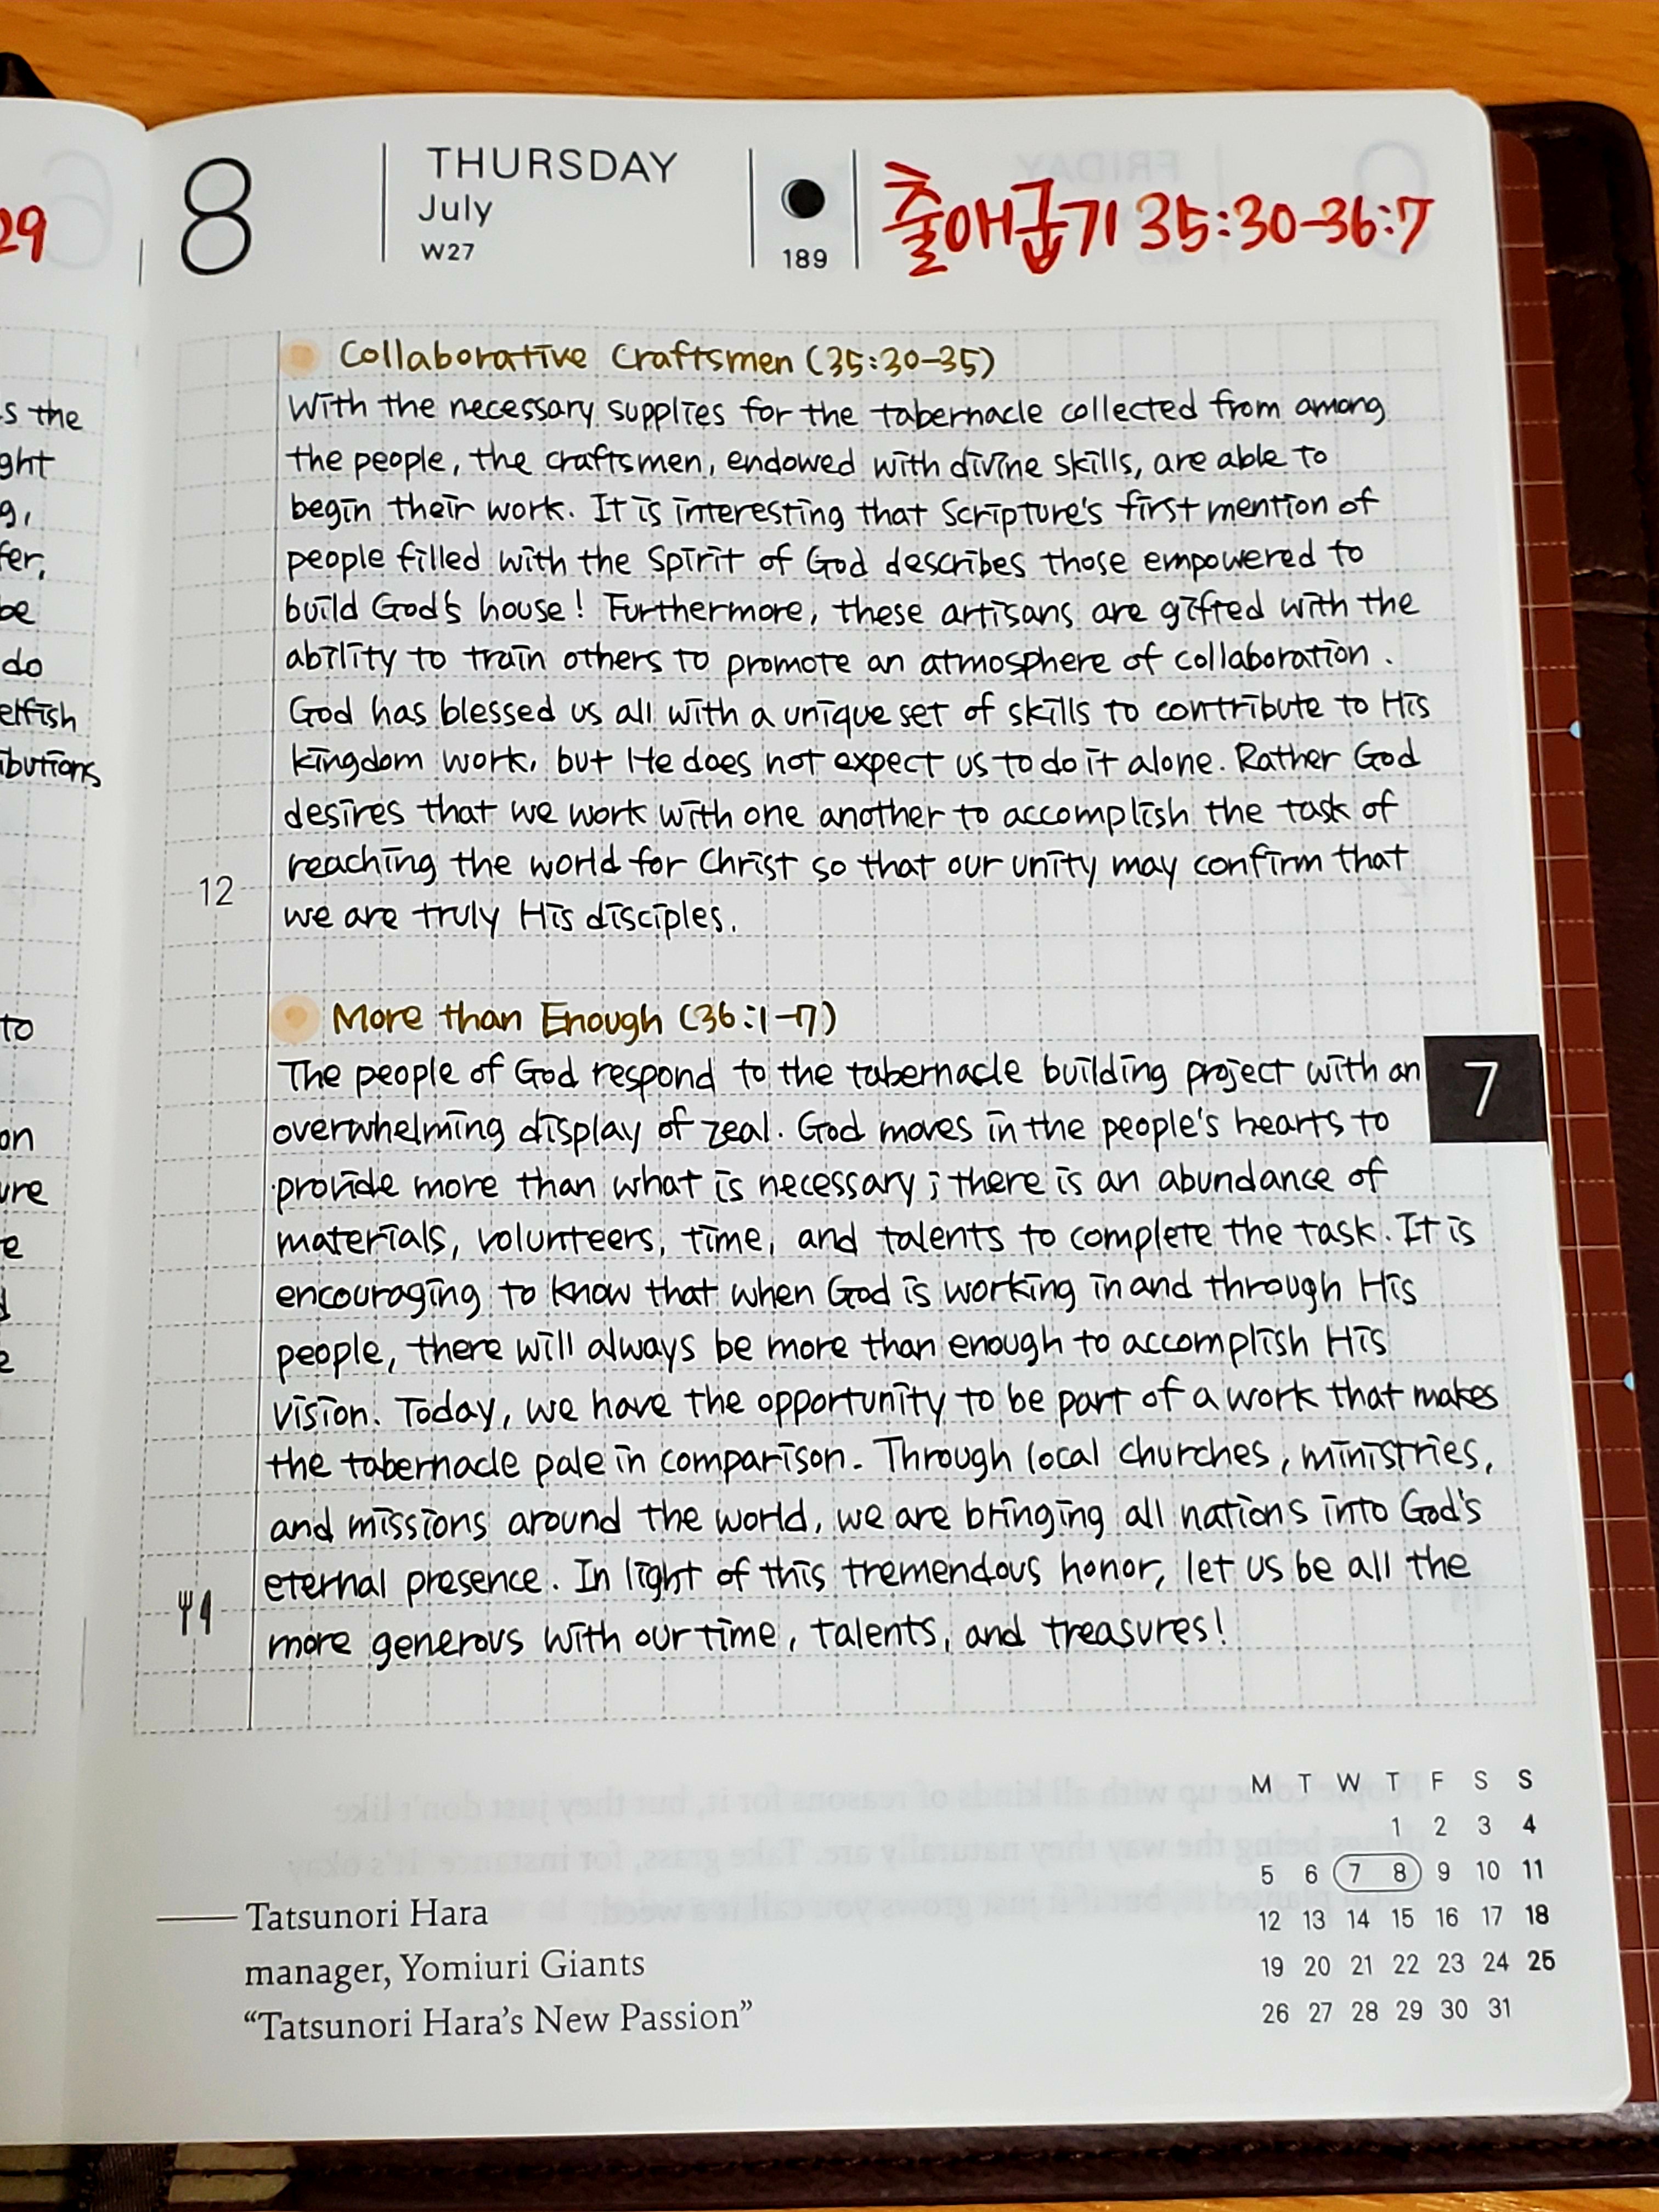 29
8
THURSDAY
July
W27
189
출애굽기 35:30-36:7
Collaborative Craftsmen (35:30-35)
With the necessary supplies for the tabernacle collected from among
the people, the craftsmen, endowed with divine skills, are able to
begin their work. It is interesting that Scripture's first mention of
people filled with the Spirit of God describes those empowered to
build God's house! Furthermore, these artisans are gifted with the
ability to train others to promote an atmosphere of collaboration.
God has blessed us all with a unique set of skills to contribute to His
kingdom work, but He does not expect us to do it alone. Rather God
desires that we work with one another to accomplish the task of
reaching the world for Christ so that our unity may confirm that
12
we are truly His disciples.
More than Enough (36:1-7)
The people of God respond to the tabernacle building project with an
7
overwhelming display of zeal. God moves in the people's hearts to
provide more than what is necessary; there is an abundance of
materials, volunteers, time, and talents to complete the task. It is
encouraging to know that when God is working in and through His
people, there will always be more than enough to accomplish His
vision. Today, we have the opportunity to be part of a work that makes
the tabernacle pale in comparison. Through local churches, ministries,
and missions around the world, we are bringing all nations into God's
eternal presence. In light of this tremendous honor, let us be all the
more generous with our time, talents, and treasures!
M T W T F S S
1 2 3 4
5 6 7 8 9 10 11
12 13 14 15 16 17 18
19 20 21 22 23 24 25
26 27 28 29 30 31
Tatsunori Hara
manager, Yomiuri Giants
“Tatsunori Hara's New Passion”
the
do
to